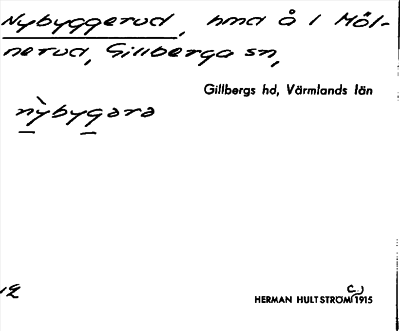 Nybyggerud, hmd å 1 Möl-
nerud, Gillberga sn,
Gillbergs hd, Värmlands län
nỳbygara
HERMAN HULTSTRÖM C.) 1915